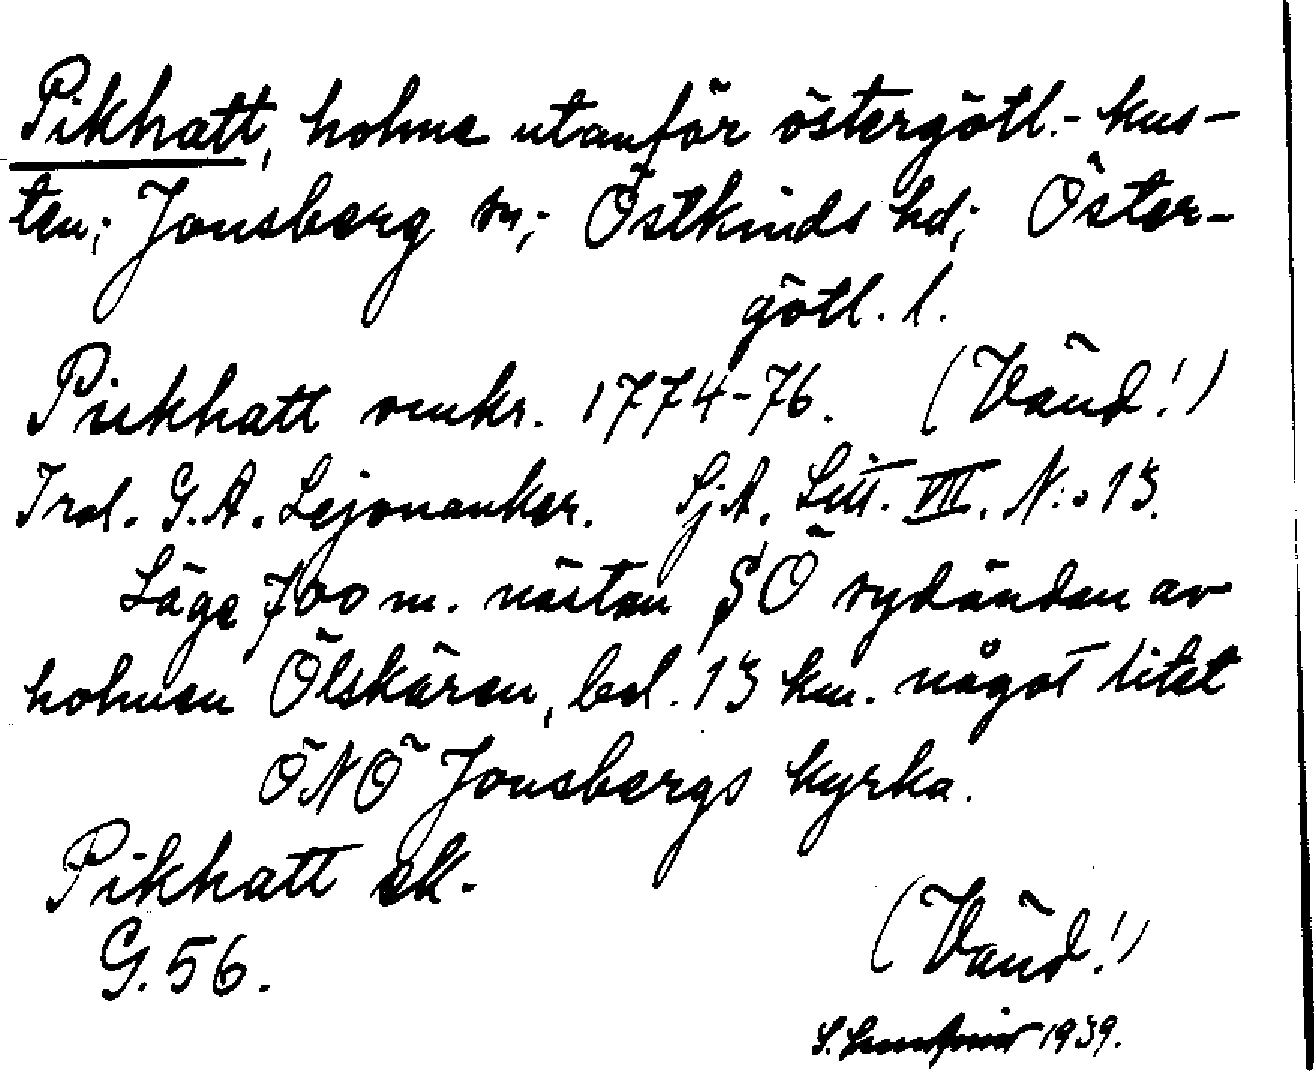 Pikhatt, holme utanför östergötl.- kus-
ten; Jonsberg sn; Östkinds hd; Öster-
götl. l.
Pickhatt omkr. 1774-76. (Vänd!)
Trol. G.A. Lejonanker. Sj.A. Litt. VIII. N:o 13.
Läge 700 m. nästan SÖ sydändan av
holmen Ölskären, bel. 13 km. något litet
ÖNÖ Jonsbergs kyrka.
Pikhatt ek.
G.56.
(Vänd!)
S. 1939.